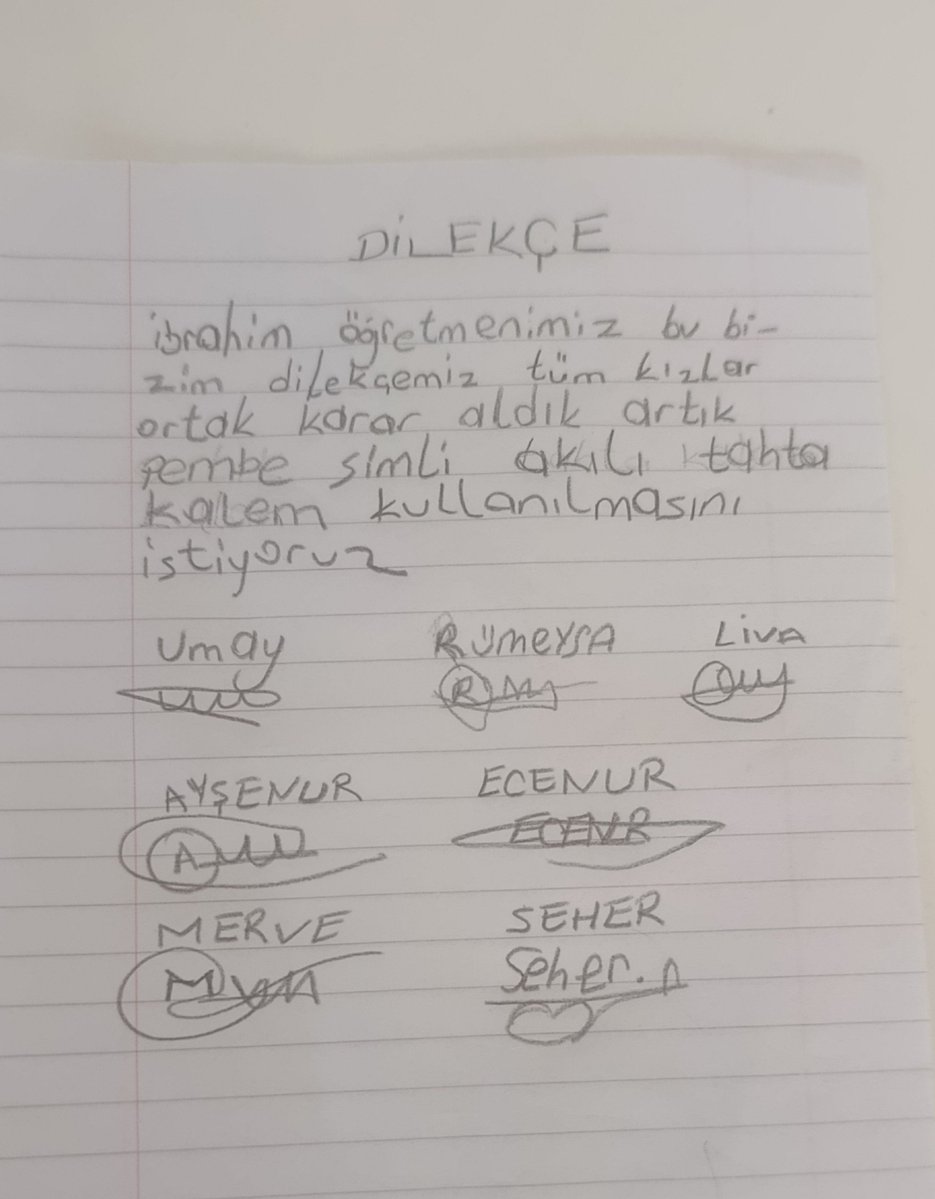 DİLEKÇE
ibrahim öğretmenimiz bu bi-
zim dilekçemiz tüm kızlar
ortak karar aldık artık
pembe simli akılı tahta
kalem kullanılmasını
istiyoruz
Umay RÜMEYSA LİVA
AYŞENUR ECENUR
ECENUR
MERVE SEHER
Seher.A